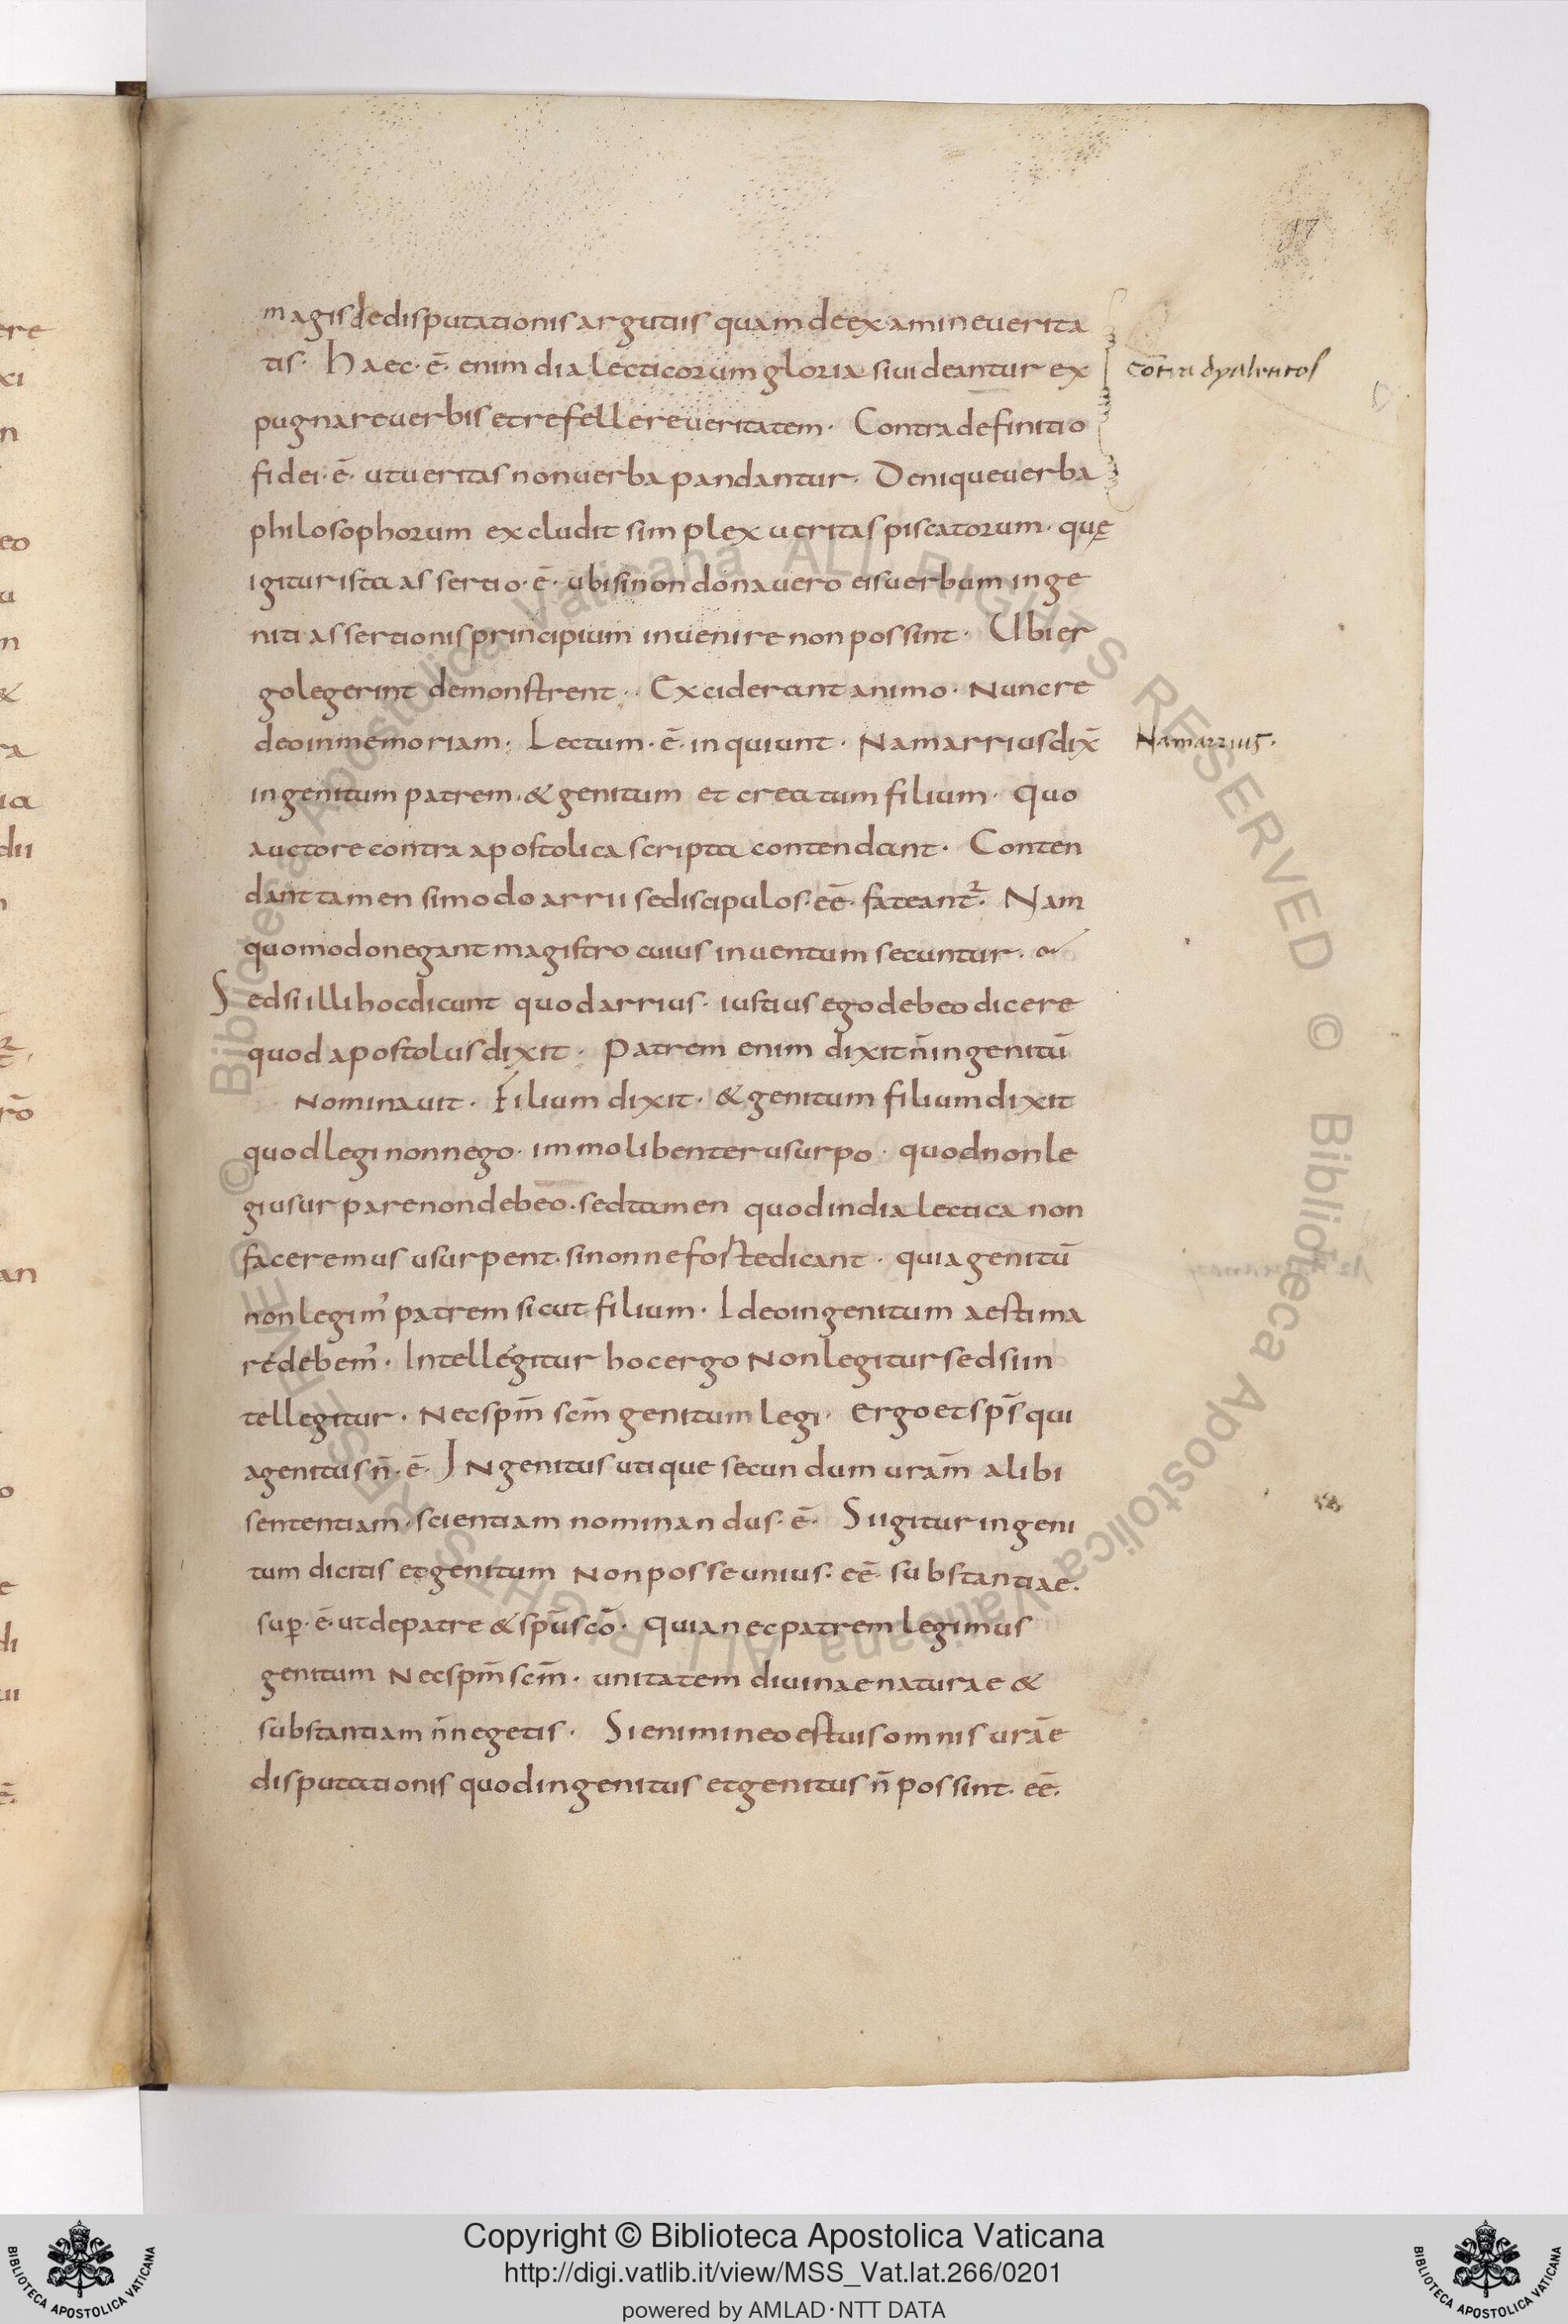 97
magis de disputationis argutiis quam de examine uerita
tis. Haec. ē. enim dialecticorum gloria si uideantur ex
pugnare uerbis et refellere ueritatem. Contra definitio
fidei. ē. ut ueritas non uerba pandantur. Denique uerba
philosophorum excludit simplex ueritas piscatorum. quę
igitur ista assertio. ē. ubi si non donauero eis uerbum inge
niti assertionis principium inuenire non possint. Ubi er
go legerint demonstrent. Exciderant animo. Nunc re
deo in memoriam. Lectum. ē. inquiunt. Nam arrius dix̄
ingenitum patrem. & genitum et creatum filium. Quo
auctore contra apostolica scripta contendant. Conten
dant tamen si modo arrii se discipulos. eē. fateant᷑. Nam
quomodo negant magistro cuius inuentum secuntur.
Sed si illi hoc dicunt quod arrius. iustius ego debeo dicere
quod apostolus dixit. Patrem enim dixit n̄ ingenitū
Nominauit. Filium dixit. & genitum filium dixit
quod legi non nego. immo libenter usurpo. quod non le
gi usurpare non debeo. sed tamen quod in dialectica non
faceremus usurpent. si non nefoste dicant. quia genitū
non legim᾽ patrem sicut filium. Ideo ingenitum aestima
re debem᾽. Intellegitur hoc ergo Non legitur sed si in
tellegitur. Nec sp̄m sc̄m genitum legi. Ergo et sp̄s qui
agenitus n̄. ē. INgenitus utique secundum uram̄ alibi
sententiam. scientiam nominandus. ē. Si igitur ingeni
tum dicitis et genitum Non posse unius. eē. substantiae.
sup̱. ē. ut de patre & sp̄u sc̄o. Quia nec patrem legimus
genitum Nec sp̄m sc̄m. unitatem diuinae naturae &
substantiam n̄ negetis. Si enim in eo est uis omnis urāe
disputationis quod ingenitus et genitus n̄ possint. eē.
cōtra dyalenticos
Nam arrius.
© Biblioteca Apostolica Vaticana ALL RIGHTS RESERVED © Biblioteca Apostolica Vaticana ALL RIGHTS RESERVED
Copyright © Biblioteca Apostolica Vaticana
http://digi.vatlib.it/view/MSS_Vat.lat.266/0201
powered by AMLAD·NTT DATA
BIBLIOTECA APOSTOLICA VATICANA
BIBLIOTECA APOSTOLICA VATICANA